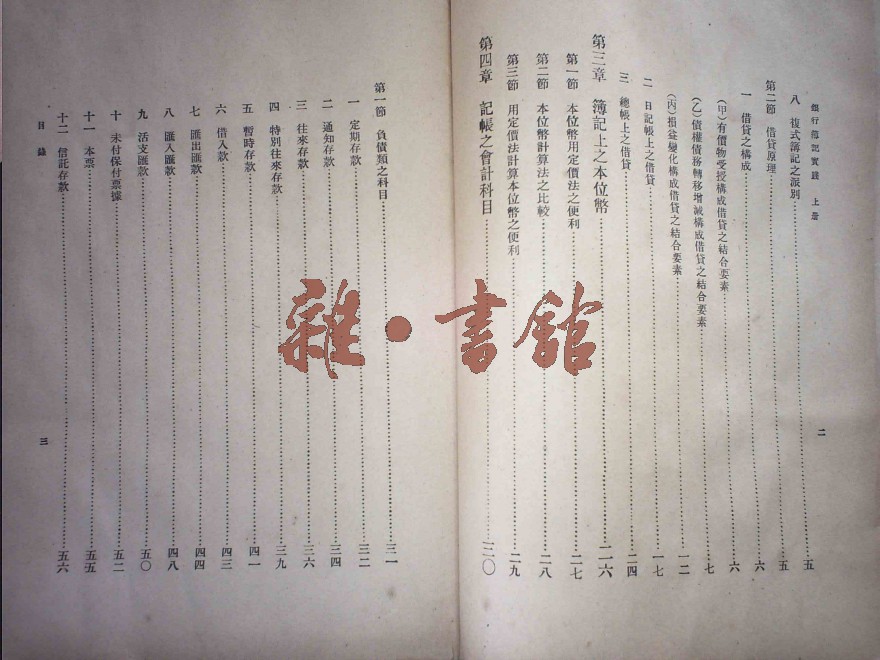 銀行簿記實踐 上册
二
八 複式簿記之派別 五
第二節 借貸原理 五
一 借貸之構成 六
(甲)有價物受授構成借貸之結合要素 六
(乙)債權債務轉移增減構成借貸之結合要素 七
(丙)損益變化構成借貸之結合要素 一二
二 日記帳上之借貸 一七
三 總帳上之借貸 二四
第三章 簿記上之本位幣 二六
第一節 本位幣用定價法之便利 二七
第二節 本位幣計算法之比較 二八
第三節 用定價法計算本位幣之便利 二九
第四章 記帳之會計科目 三〇
第一節 負債類之科目 三一
一 定期存款 三二
二 通知存款 三四
三 往來存款 三六
四 特別往來存款 三九
五 暫時存款 四一
六 借入款 四三
七 匯出匯款 四四
八 匯入匯款 四八
九 活支匯款 五〇
十 未付保付票據 五二
十一 本票 五五
十二 信託存款 五六
目錄
三
雜·書館